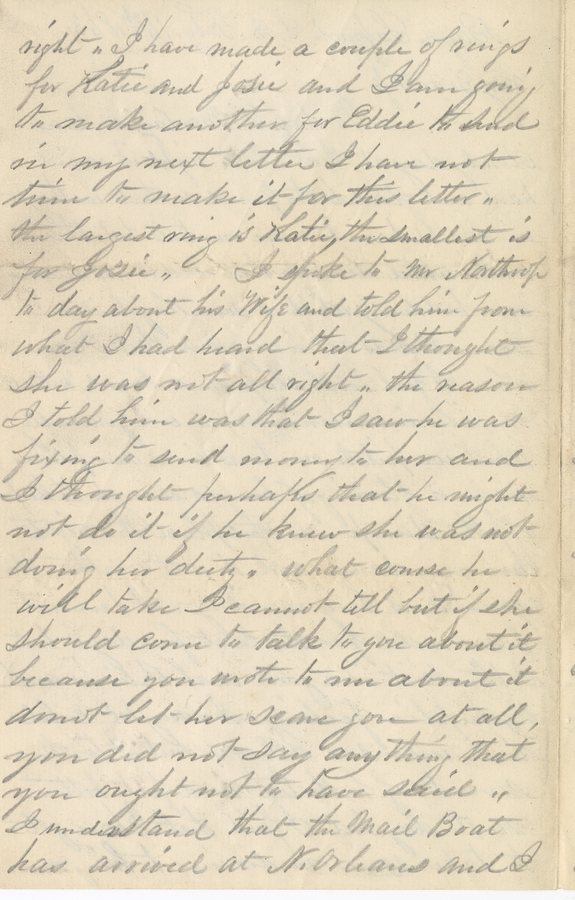 right " I have made a couple of rings
for Katie and Josie and I am going
to make another for Eddie to send
in my next letter I have not
time to make it for this letter "
the largest ring is Katie, the smallest is
for Josie " I spoke to Mr Northrop
to day about his Wife and told him from
what I had heard that I thought
she was not all right " the reason
I told him was that I saw he was
fixing to send money to her and
I thought perhaps that he might
not do it if he knew she was not
doing her duty " what course he
will take I cannot tell but if she
should come to talk to you about it
because you wrote to me about it
donot let her scare you at all,
you did not say anything that
you ought not to have said "
I understand that the Mail Boat
has arrived at N. Orleans and I